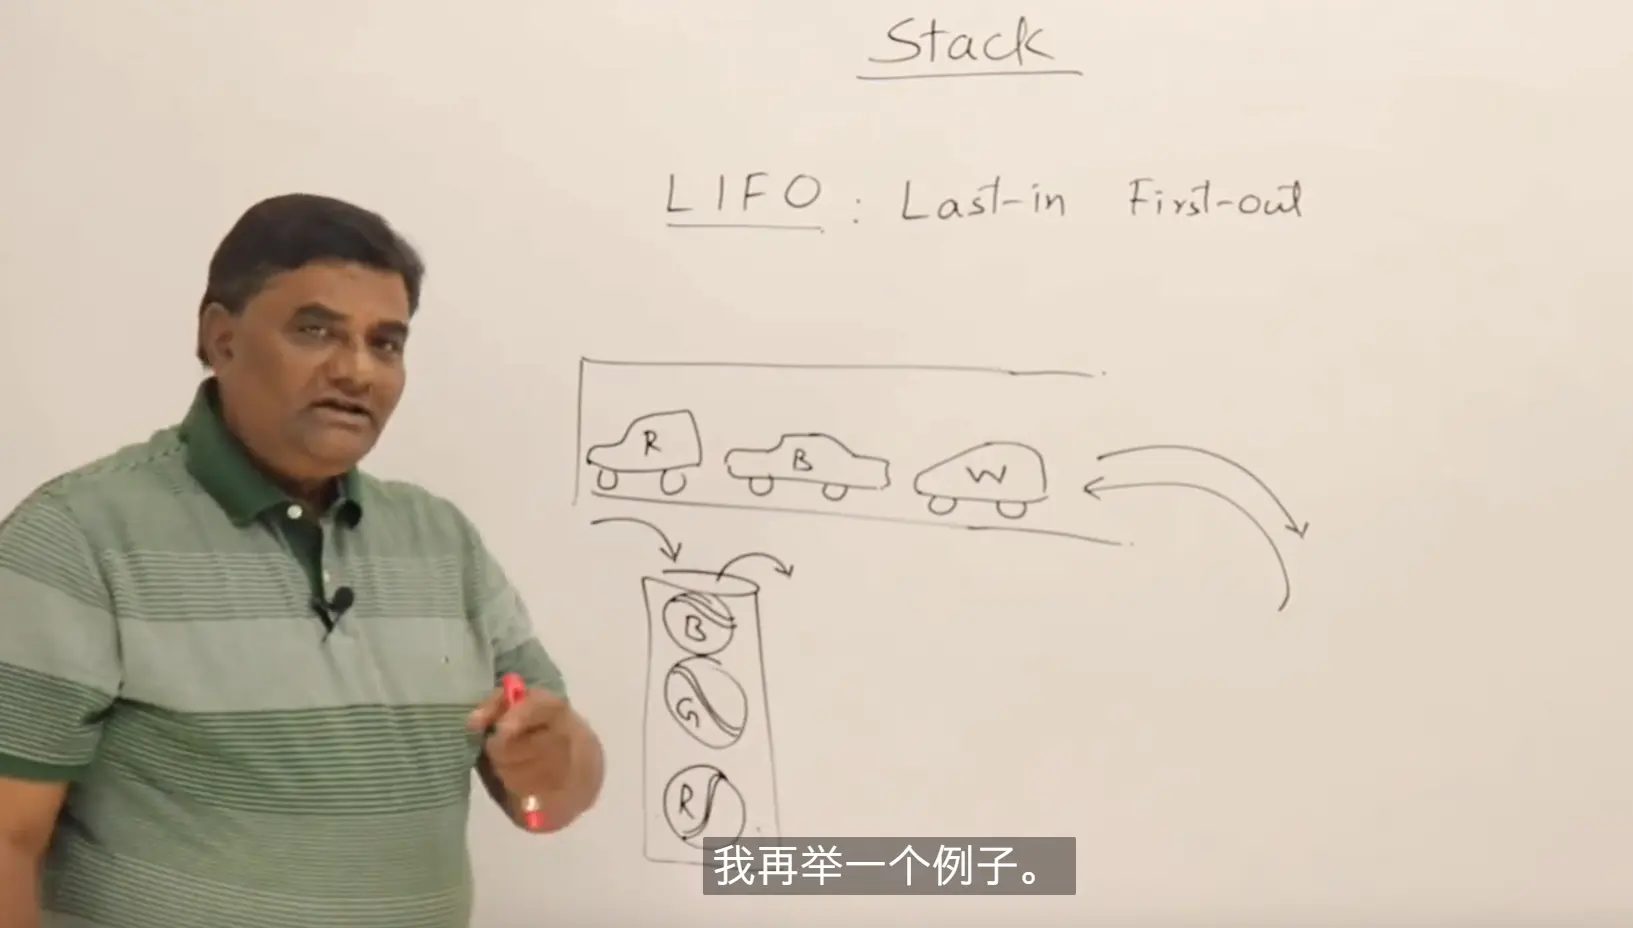 Stack
LIFO : Last-in First-out
R B W
B
G
R
我再举一个例子。